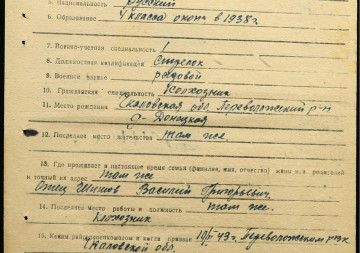 5. Национальность русский
6. Образование 4 класса оконч в 1938 г
7. Военно-учетная специальность 1
8. Должностная квалификация Стрелок
9. Военное звание рядовой
10. Гражданская специальность Колхозник
11. Место рождения Чкаловская обл. Переволоцкий р-н
д- Донецкая
12. Последнее место жительства там же.
13. Где проживает в настоящее время семья (фамилия, имя, отчество) жены или родителей
и точный их адрес там же
Отец Шишов Василий Григорьевич.
14. Последнее место работы и должность там же.
Колхозник
15. Каким райвоенкоматом и когда призван 10/II 43 г. Переволоцким РВК
Чкаловской обл.